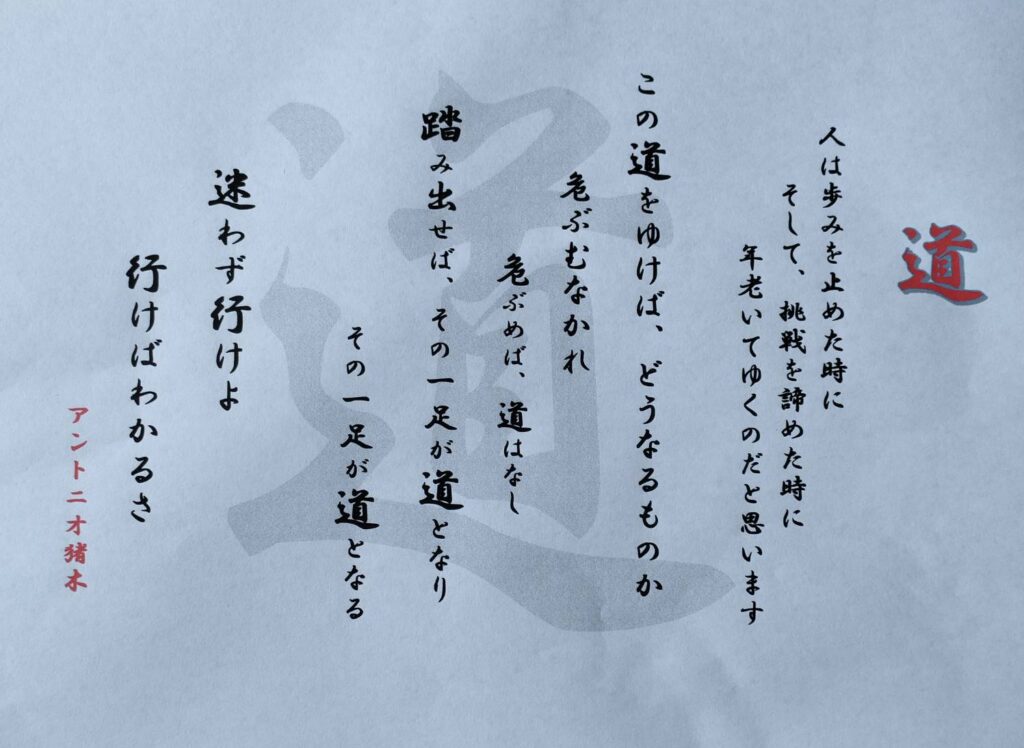 道
人は歩みを止めた時に
そして、挑戦を諦めた時に
年老いてゆくのだと思います
この道をゆけば、どうなるものか
危ぶむなかれ
危ぶめば、道はなし
踏み出せば、その一足が道となり
その一足が道となる
迷わず行けよ
行けばわかるさ
アントニオ猪木
道